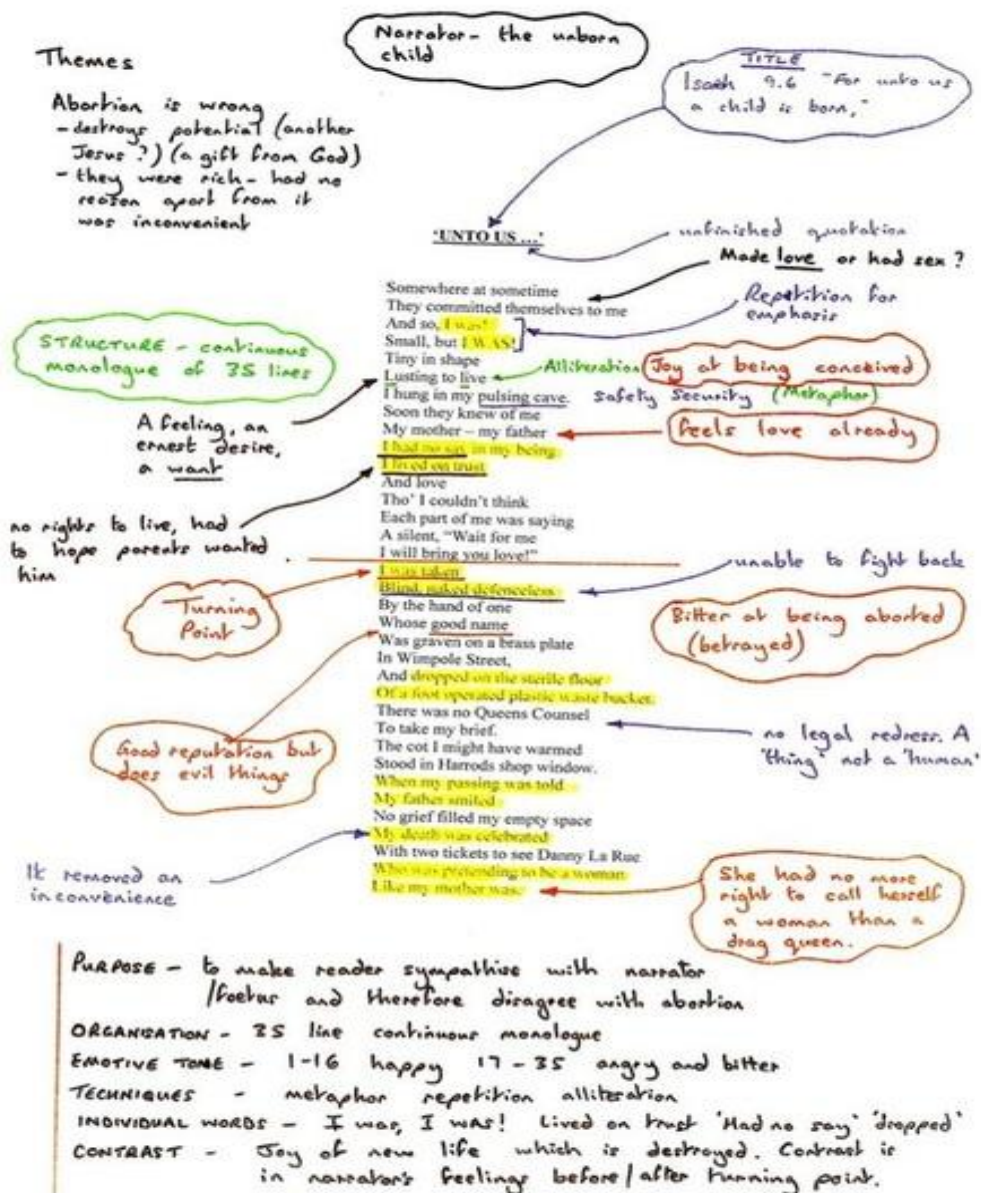 Narrator - the unborn
child
Themes
Abortion is wrong
- destroys potential (another
Jesus ?) (a gift from God)
- they were rich - had no
reason apart from it
was inconvenient
TITLE
Isaiah 9.6 "For unto us
a child is born,"
'UNTO US ...'
unfinished quotation
Made love or had sex ?
Repetition for
emphasis
STRUCTURE - continuous
monologue of 35 lines
A feeling, an
ernest desire,
a want
no rights to live, had
to hope parents wanted
him
Turning
Point
Good reputation but
does evil things
It removed an
inconvenience
Somewhere at sometime
They committed themselves to me
And so, I was!
Small, but I WAS!
Tiny in shape
Lusting to live
I hung in my pulsing cave.
Soon they knew of me
My mother – my father
I had no say in my being
I lived on trust
And love
Tho' I couldn't think
Each part of me was saying
A silent, "Wait for me
I will bring you love!"
I was taken
Blind, naked defenceless
By the hand of one
Whose good name
Was graven on a brass plate
In Wimpole Street,
And dropped on the sterile floor
Of a foot operated plastic waste bucket.
There was no Queens Counsel
To take my brief.
The cot I might have warmed
Stood in Harrods shop window.
When my passing was told
My father smiled
No grief filled my empty space
My death was celebrated
With two tickets to see Danny La Rue
Who was pretending to be a woman
Like my mother was.
Alliteration
Joy at being conceived
safety security (Metaphor)
feels love already
unable to fight back
Bitter at being aborted
(betrayed)
no legal redress. A
'thing' not a 'human'
She had no more
right to call herself
a woman than a
drag queen.
PURPOSE - to make reader sympathise with narrator
/foetus and therefore disagree with abortion
ORGANISATION - 35 line continuous monologue
EMOTIVE TONE - 1-16 happy 17-35 angry and bitter
TECHNIQUES - metaphor repetition alliteration
INDIVIDUAL WORDS - I was, I was! Lived on trust 'Had no say' 'dropped'
CONTRAST - Joy of new life which is destroyed. Contrast is
in narrator's feelings before/after turning point.